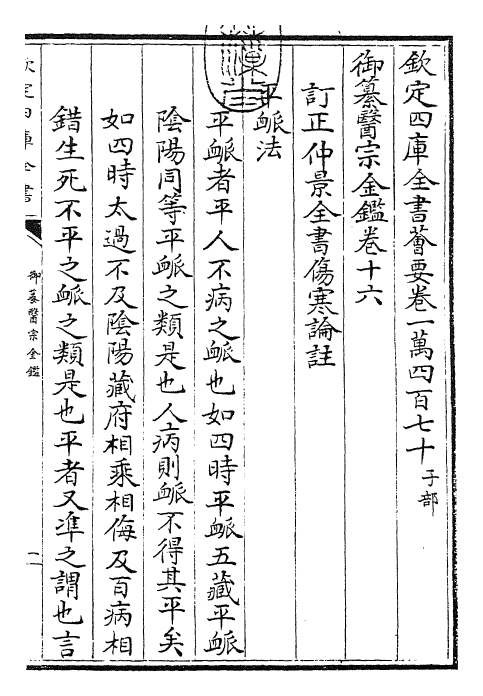 欽定四庫全書薈要卷一萬四百七十 子部
御纂醫宗金鑑卷十六
訂正仲景全書傷寒論註
平䘑法
平䘑者平人不病之䘑也如四時平䘑五藏平䘑
陰陽同等平䘑之類是也人病則䘑不得其平矣
如四時太過不及陰陽藏府相乘相侮及百病相
錯生死不平之䘑之類是也平者又准之謂也言
欽定四庫全書
御纂醫宗金鑑
一